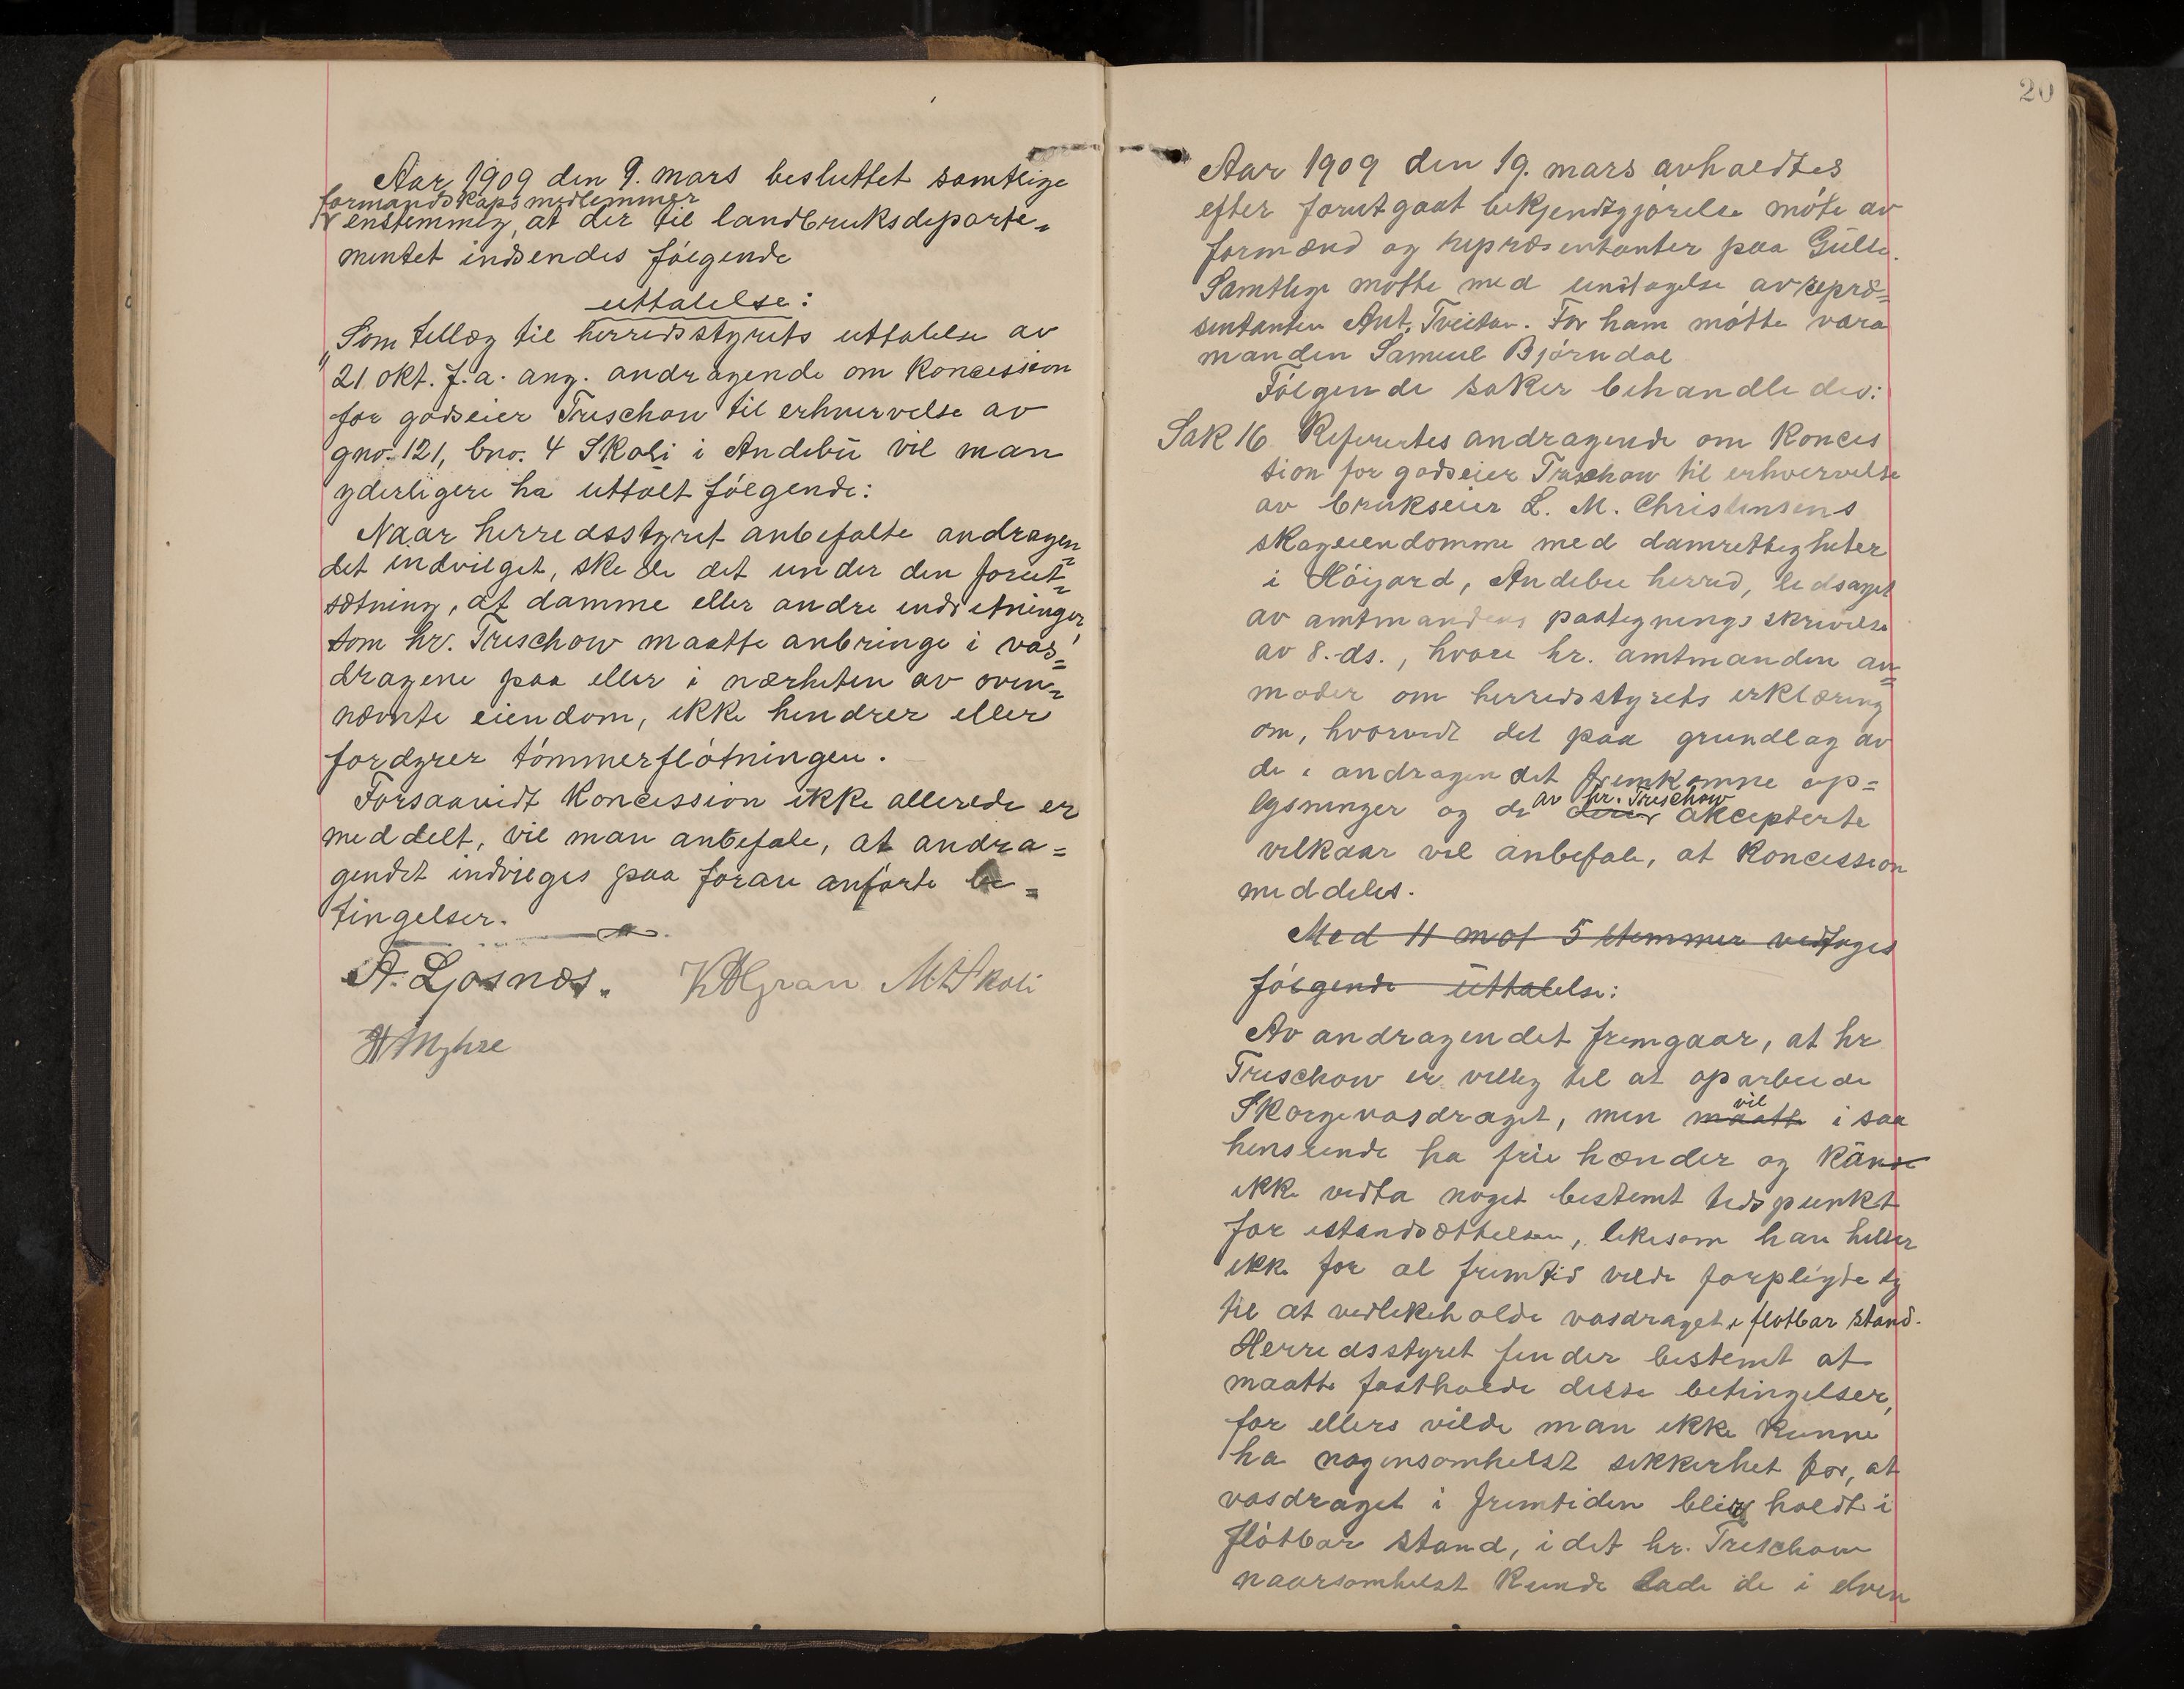 Aar 1909 den 9. mars besluttet samtlige
formandskapsmedlemmer
enstemmig, at der til landbruksdeparte-
mentet indsendes følgende
uttalelse:
"Som tillæg til herredsstyrets uttalelse av
21. okt. f. a. ang. andragende om koncession
for godseier Treschow til erhvervelse av
gno. 121, bno. 4 Skoli i Andebu vil man
yderligere ha uttalt følgende:
Naar herredsstyret anbefalte andragen-
det indvilget, skede det under den forut-
sætning, at damme eller andre indretninger
som hr. Treschow maatte anbringe i vas-
dragene paa eller i nærheten av oven-
nævnte eiendom, ikke hindrer eller
fordyrer tømmerfløtningen.
Forsaavidt koncession ikke allerede er
meddelt, vil man anbefale, at andra=
gendet indvilges paa foran anførte be=
tingelser.
A. Ljosnæs. K A Gran M. A. Skoli
H A Myhre
20
Aar 1909 den 19. mars avholdtes
efter forutgaat bekjendtgjørelse møte av
formænd og repræsentanter paa Gulli.
Samtlige møtte med undtagelse av repræ=
sentanten Ant. Tveitan. For ham møtte vara
manden Samuel Bjørndal
Følgende saker behandledes:
Sak 16 Referertes andragende om konces
sion for godseier Treschow til erhvervelse
av brukseier L. M. Christensens
skogeiendomme med damrettigheter
i Høijord, Andebu herred, ledsaget
av amtmandens paategningsskrivelse
av 8. ds., hvori hr. amtmanden an=
moder om herredsstyrets erklæring
om, hvorvidt det paa grundlag av
de i andragendet fremkomne op=
av hr. Treschow
lysninger og de derav akcepterte
vilkaar vil anbefale, at koncession
meddeles.
Med 11 mot 5 stemmer vedtoges
følgende uttalelse:
Av andragendet fremgaar, at hr
Treschow er villig til at oparbeide
vil
Skorgevasdraget, men maatte i saa
henseende ha frie hænder og kunde
ikke vedta noget bestemt tidspunkt
for istandsættelsen, likesom han heller
ikke for al fremtid vilde forpligte sig
til at vedlikeholde vasdraget i fløtbar stand.
Herredsstyret finder bestemt at
maatte fastholde disse betingelser,
for ellers vilde man ikke kunne
ha nogensomhelst sikkerhet for, at
vasdraget i fremtiden blir holdt i
fløtbar stand, idet hr. Treschow
naarsomhelst kunde lade de i elven